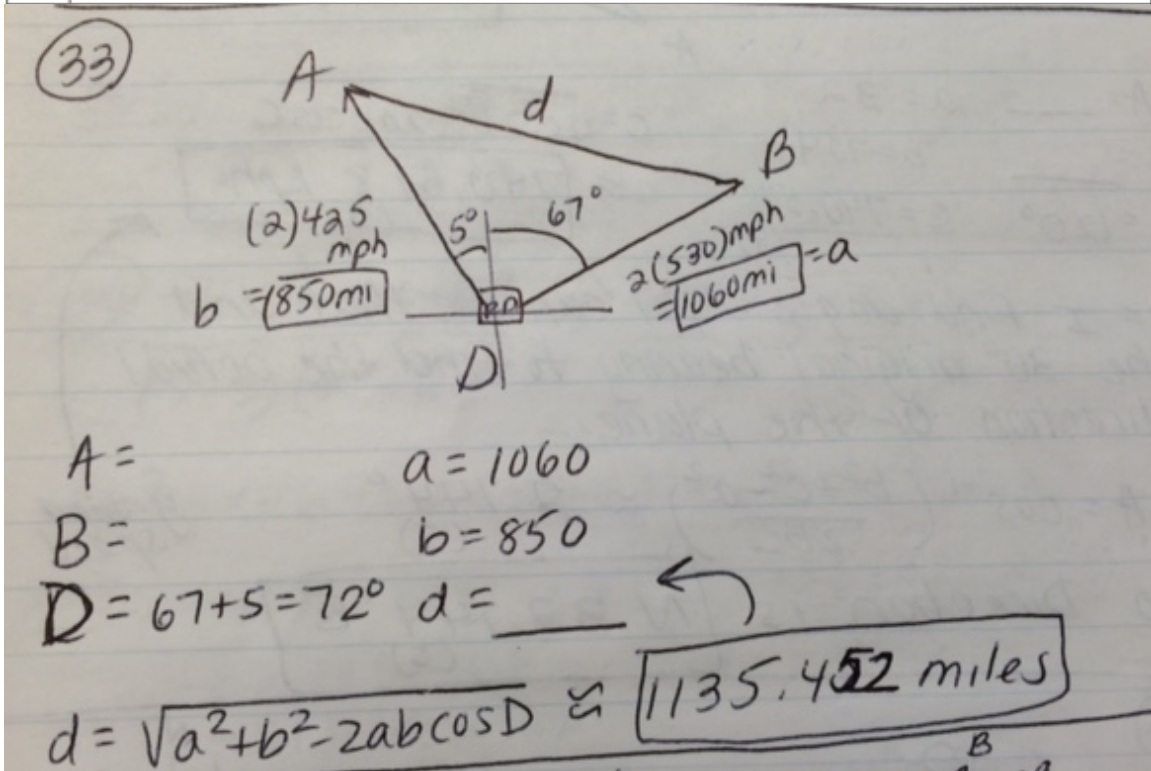 33
A
d
B
(2)425
mph
5°
67°
2(530)mph
b = 850mi
= 1060mi = a
D
A =
a = 1060
B =
b = 850
D = 67+5=72° d = ____
d = √a²+b²-2abcosD ≈ 1135.452 miles
B